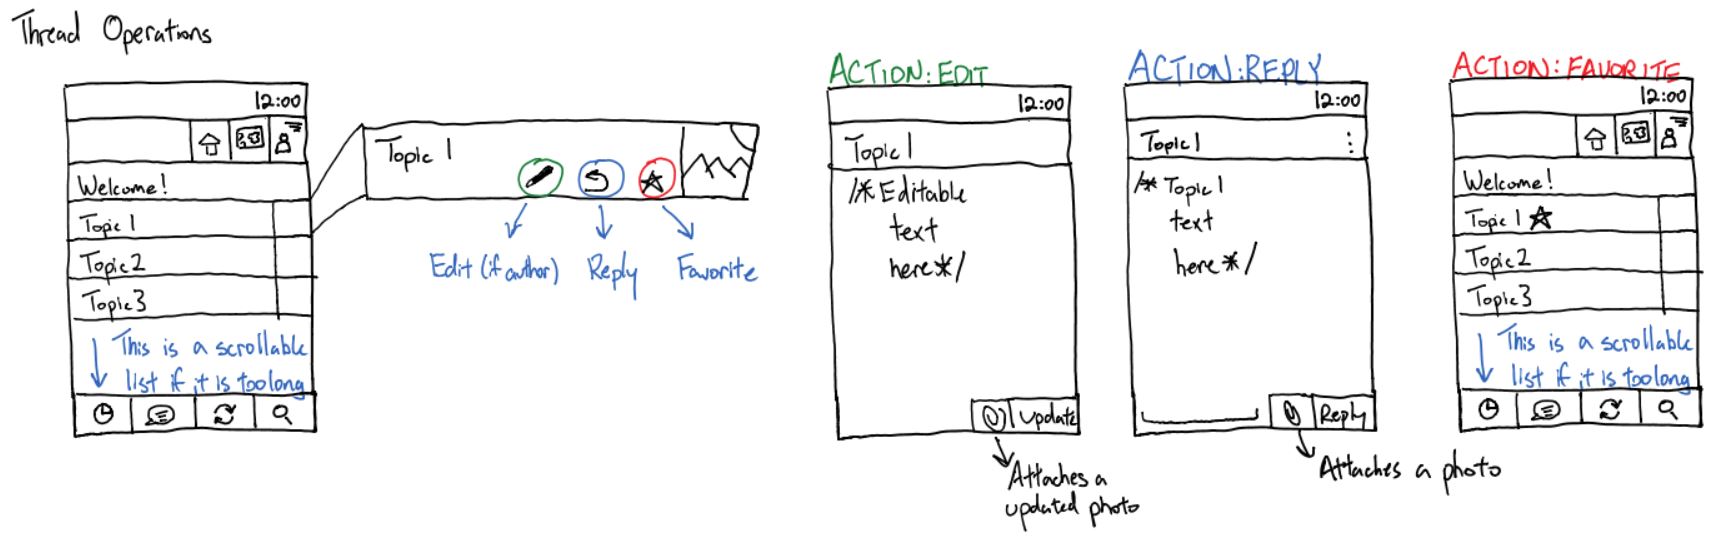 Thread Operations
12:00
Welcome!
Topic 1
Topic 2
Topic 3
This is a scrollable
list if it is too long
Topic 1
Edit (if author)
Reply
Favorite
ACTION: EDIT
12:00
Topic 1
/* Editable
text
here */
Update
Attaches a
updated photo
ACTION: REPLY
12:00
Topic 1
/* Topic 1
text
here */
Reply
Attaches a photo
ACTION: FAVORITE
12:00
Welcome!
Topic 1
Topic 2
Topic 3
This is a scrollable
list if it is too long